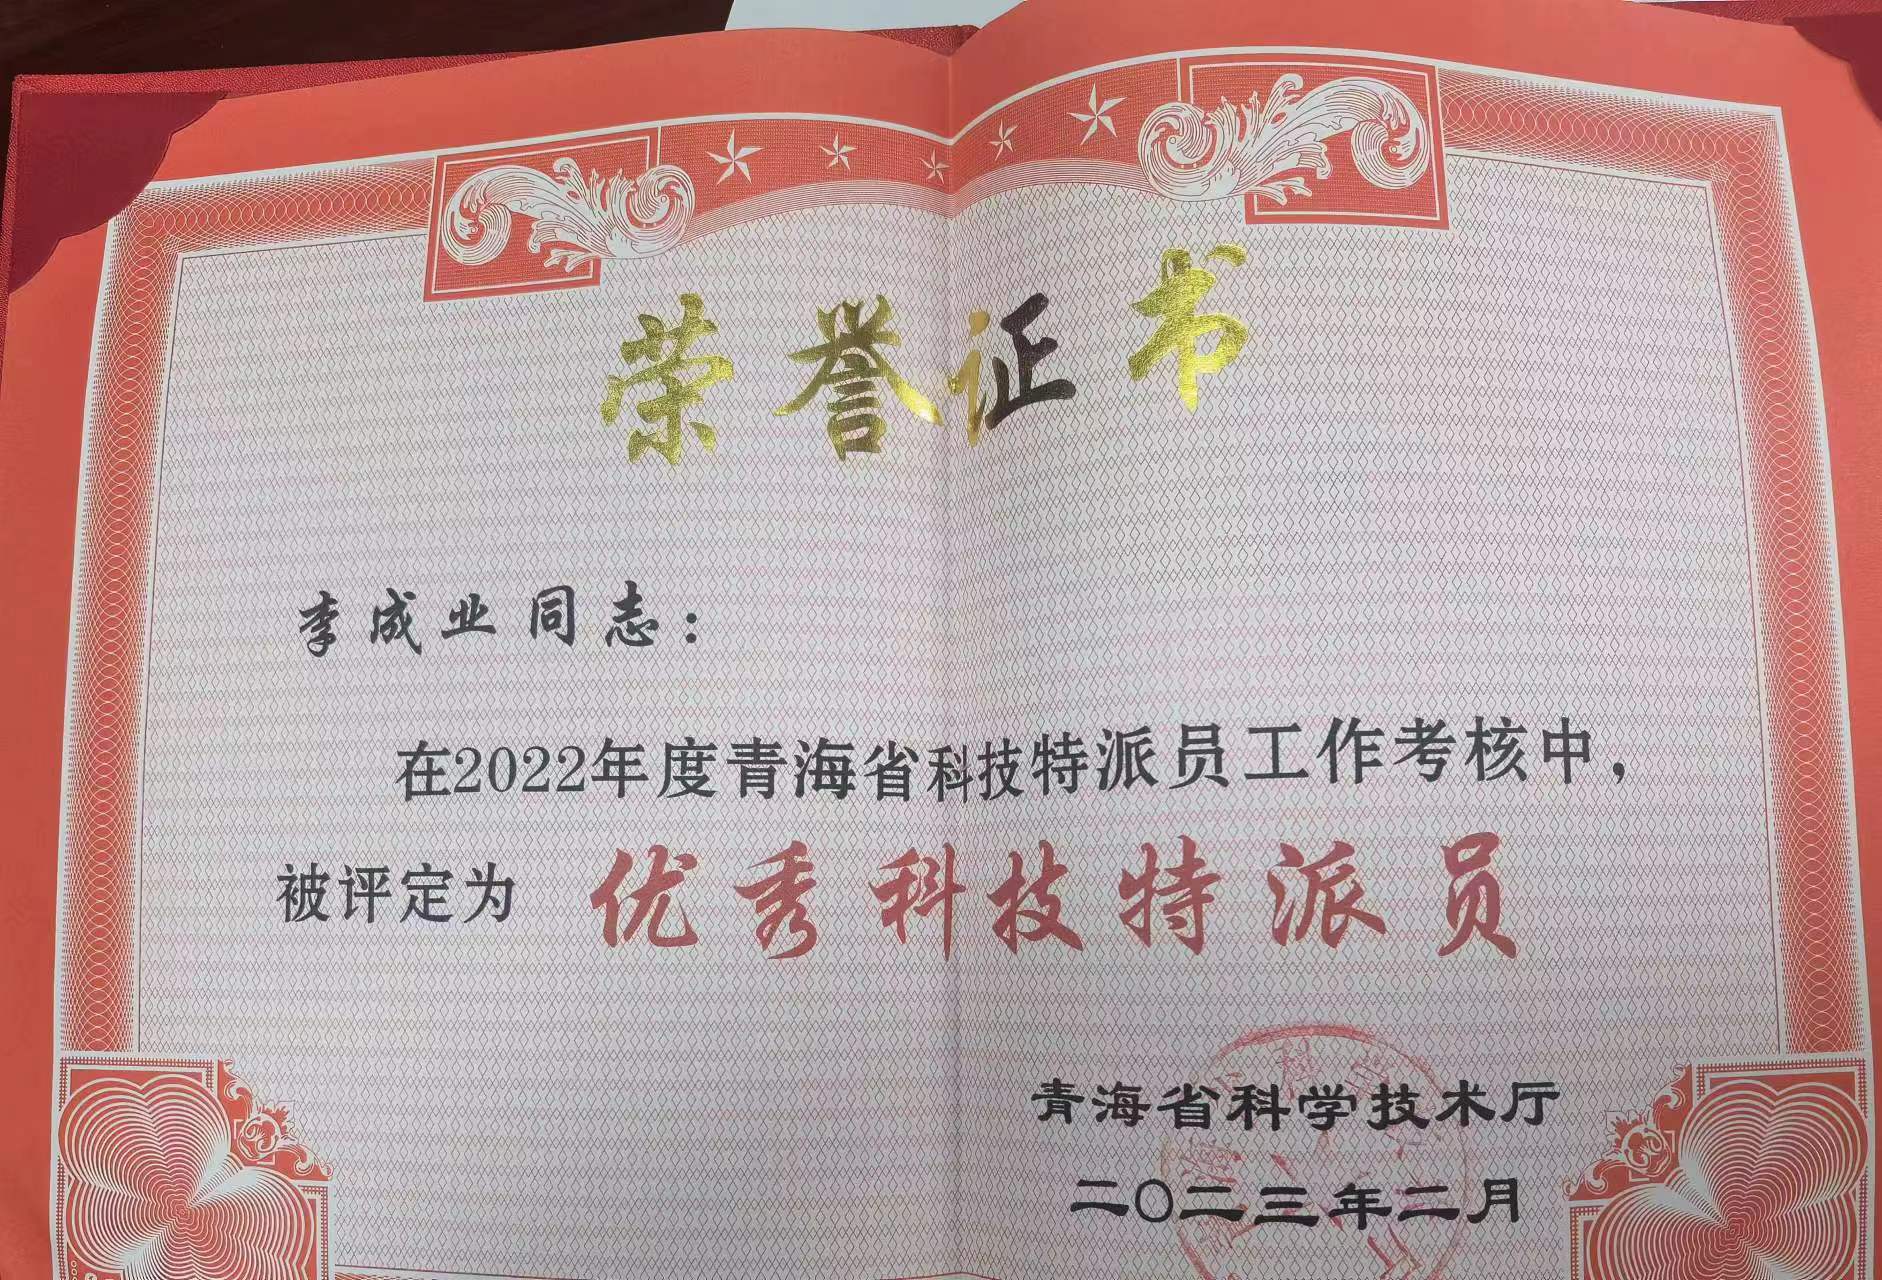 荣誉证书
李成业同志：
在2022年度青海省科技特派员工作考核中，
被评定为 优秀科技特派员
青海省科学技术厅
二〇二三年二月